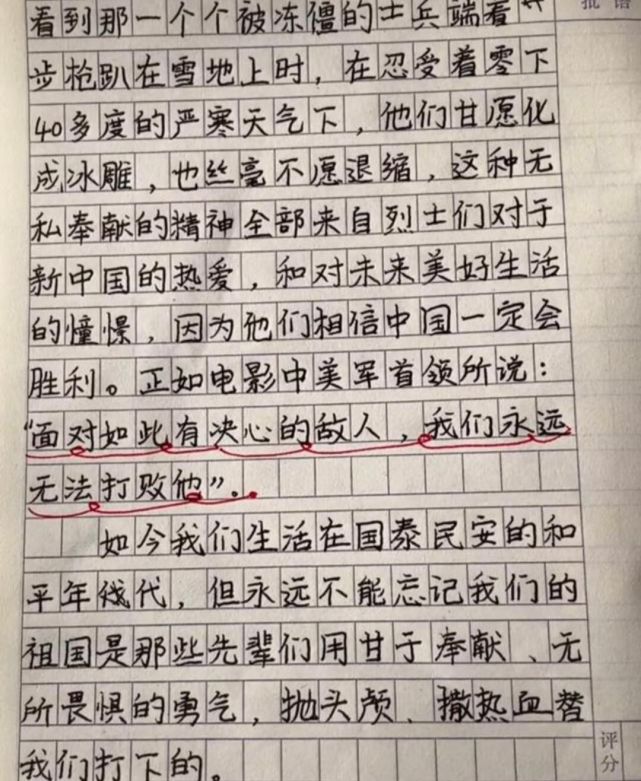 看到那一个个被冻僵的士兵端着
步枪趴在雪地上时，在忍受着零下
40多度的严寒天气下，他们甘愿化
成冰雕，也丝毫不愿退缩，这种无
私奉献的精神全部来自烈士们对于
新中国的热爱，和对未来美好生活
的憧憬，因为他们相信中国一定会
胜利。正如电影中美军首领所说：
“面对如此有决心的敌人，我们永远
无法打败他”。
如今我们生活在国泰民安的和
平年代，但永远不能忘记我们的
祖国是那些先辈们用甘于奉献、无
所畏惧的勇气，抛头颅、撒热血替
我们打下的。
批语
评分